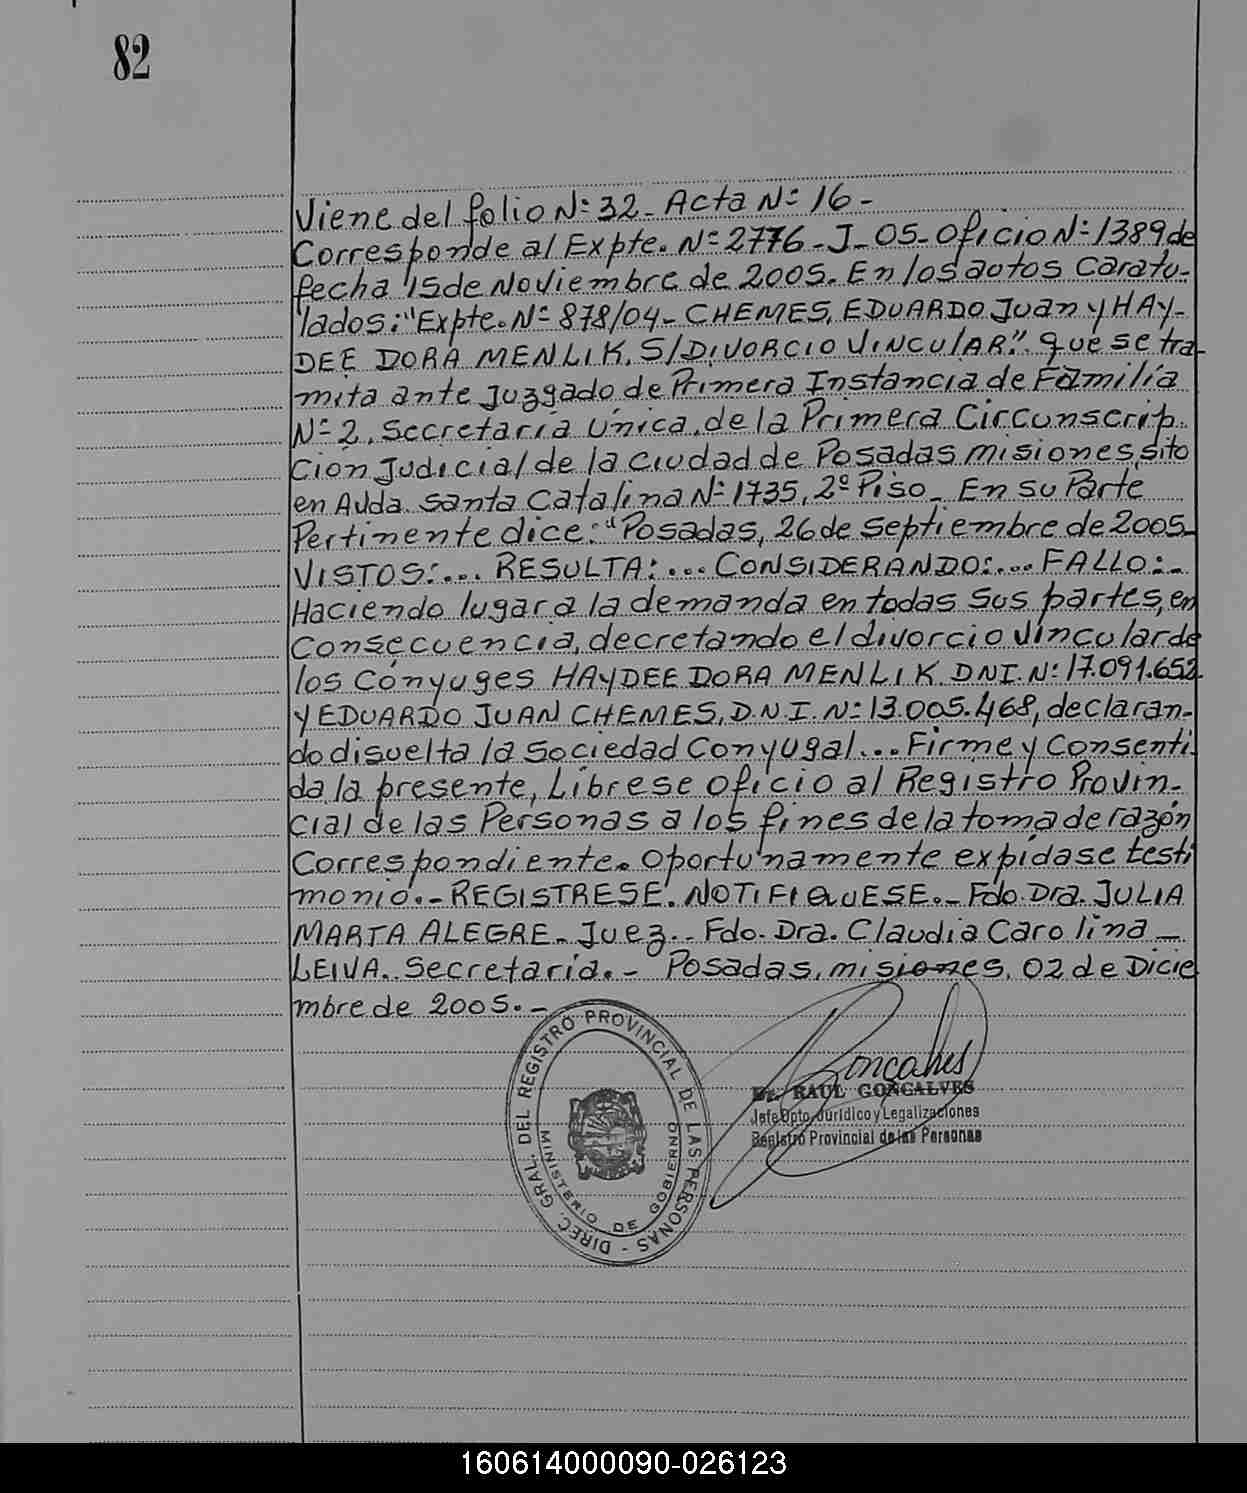 82
Viene del folio Nº 32_ Acta Nº 16_
Corresponde al Expte. Nº 2776_J_05_Oficio Nº 1389 de
fecha 15 de Noviembre de 2005. En los autos Caratu-
lados: "Expte. Nº 878/04_ CHEMES, EDUARDO Juan y HAY-
DEE DORA MENLIK, S/DIVORCIO VINCULAR". que se tra-
mita ante Juzgado de Primera Instancia de Familia
Nº 2, Secretaría Única, de la Primera Circunscrip-
ción Judicial de la Ciudad de Posadas Misiones, sito
en Avda. Santa Catalina Nº 1735, 2º Piso_ En su Parte
Pertinente dice: "Posadas, 26 de Septiembre de 2005_
VISTOS:... RESULTA:... CONSIDERANDO:... FALLO:_
Haciendo lugar a la demanda en todas sus partes, en
Consecuencia, decretando el divorcio vincular de
los Cónyuges HAYDEE DORA MENLIK. DNI. Nº 17.091.652
y EDUARDO JUAN CHEMES, D.N.I. Nº 13.005.468, declaran-
do disuelta la Sociedad Conyugal... Firme y Consenti-
da la presente, Líbrese Oficio al Registro Provin-
cial de las Personas a los fines de la toma de razón
Correspondiente. Oportunamente expídase testi
monio.- REGISTRESE. NOTIFIQUESE._ Fdo. Dra. JULIA
MARTA ALEGRE_ Juez._ Fdo. Dra. Claudia Carolina_
LEIVA_ Secretaria.- Posadas, misiones, 02 de Dicie
mbre de 2005._
DIREC. GRAL. DEL REGISTRO PROVINCIAL DE LAS PERSONAS -
MINISTERIO DE GOBIERNO
Goncalves
Dr. RAUL GONCALVES
Jefe Dpto. Jurídico y Legalizaciones
Registro Provincial de las Personas
160614000090-026123